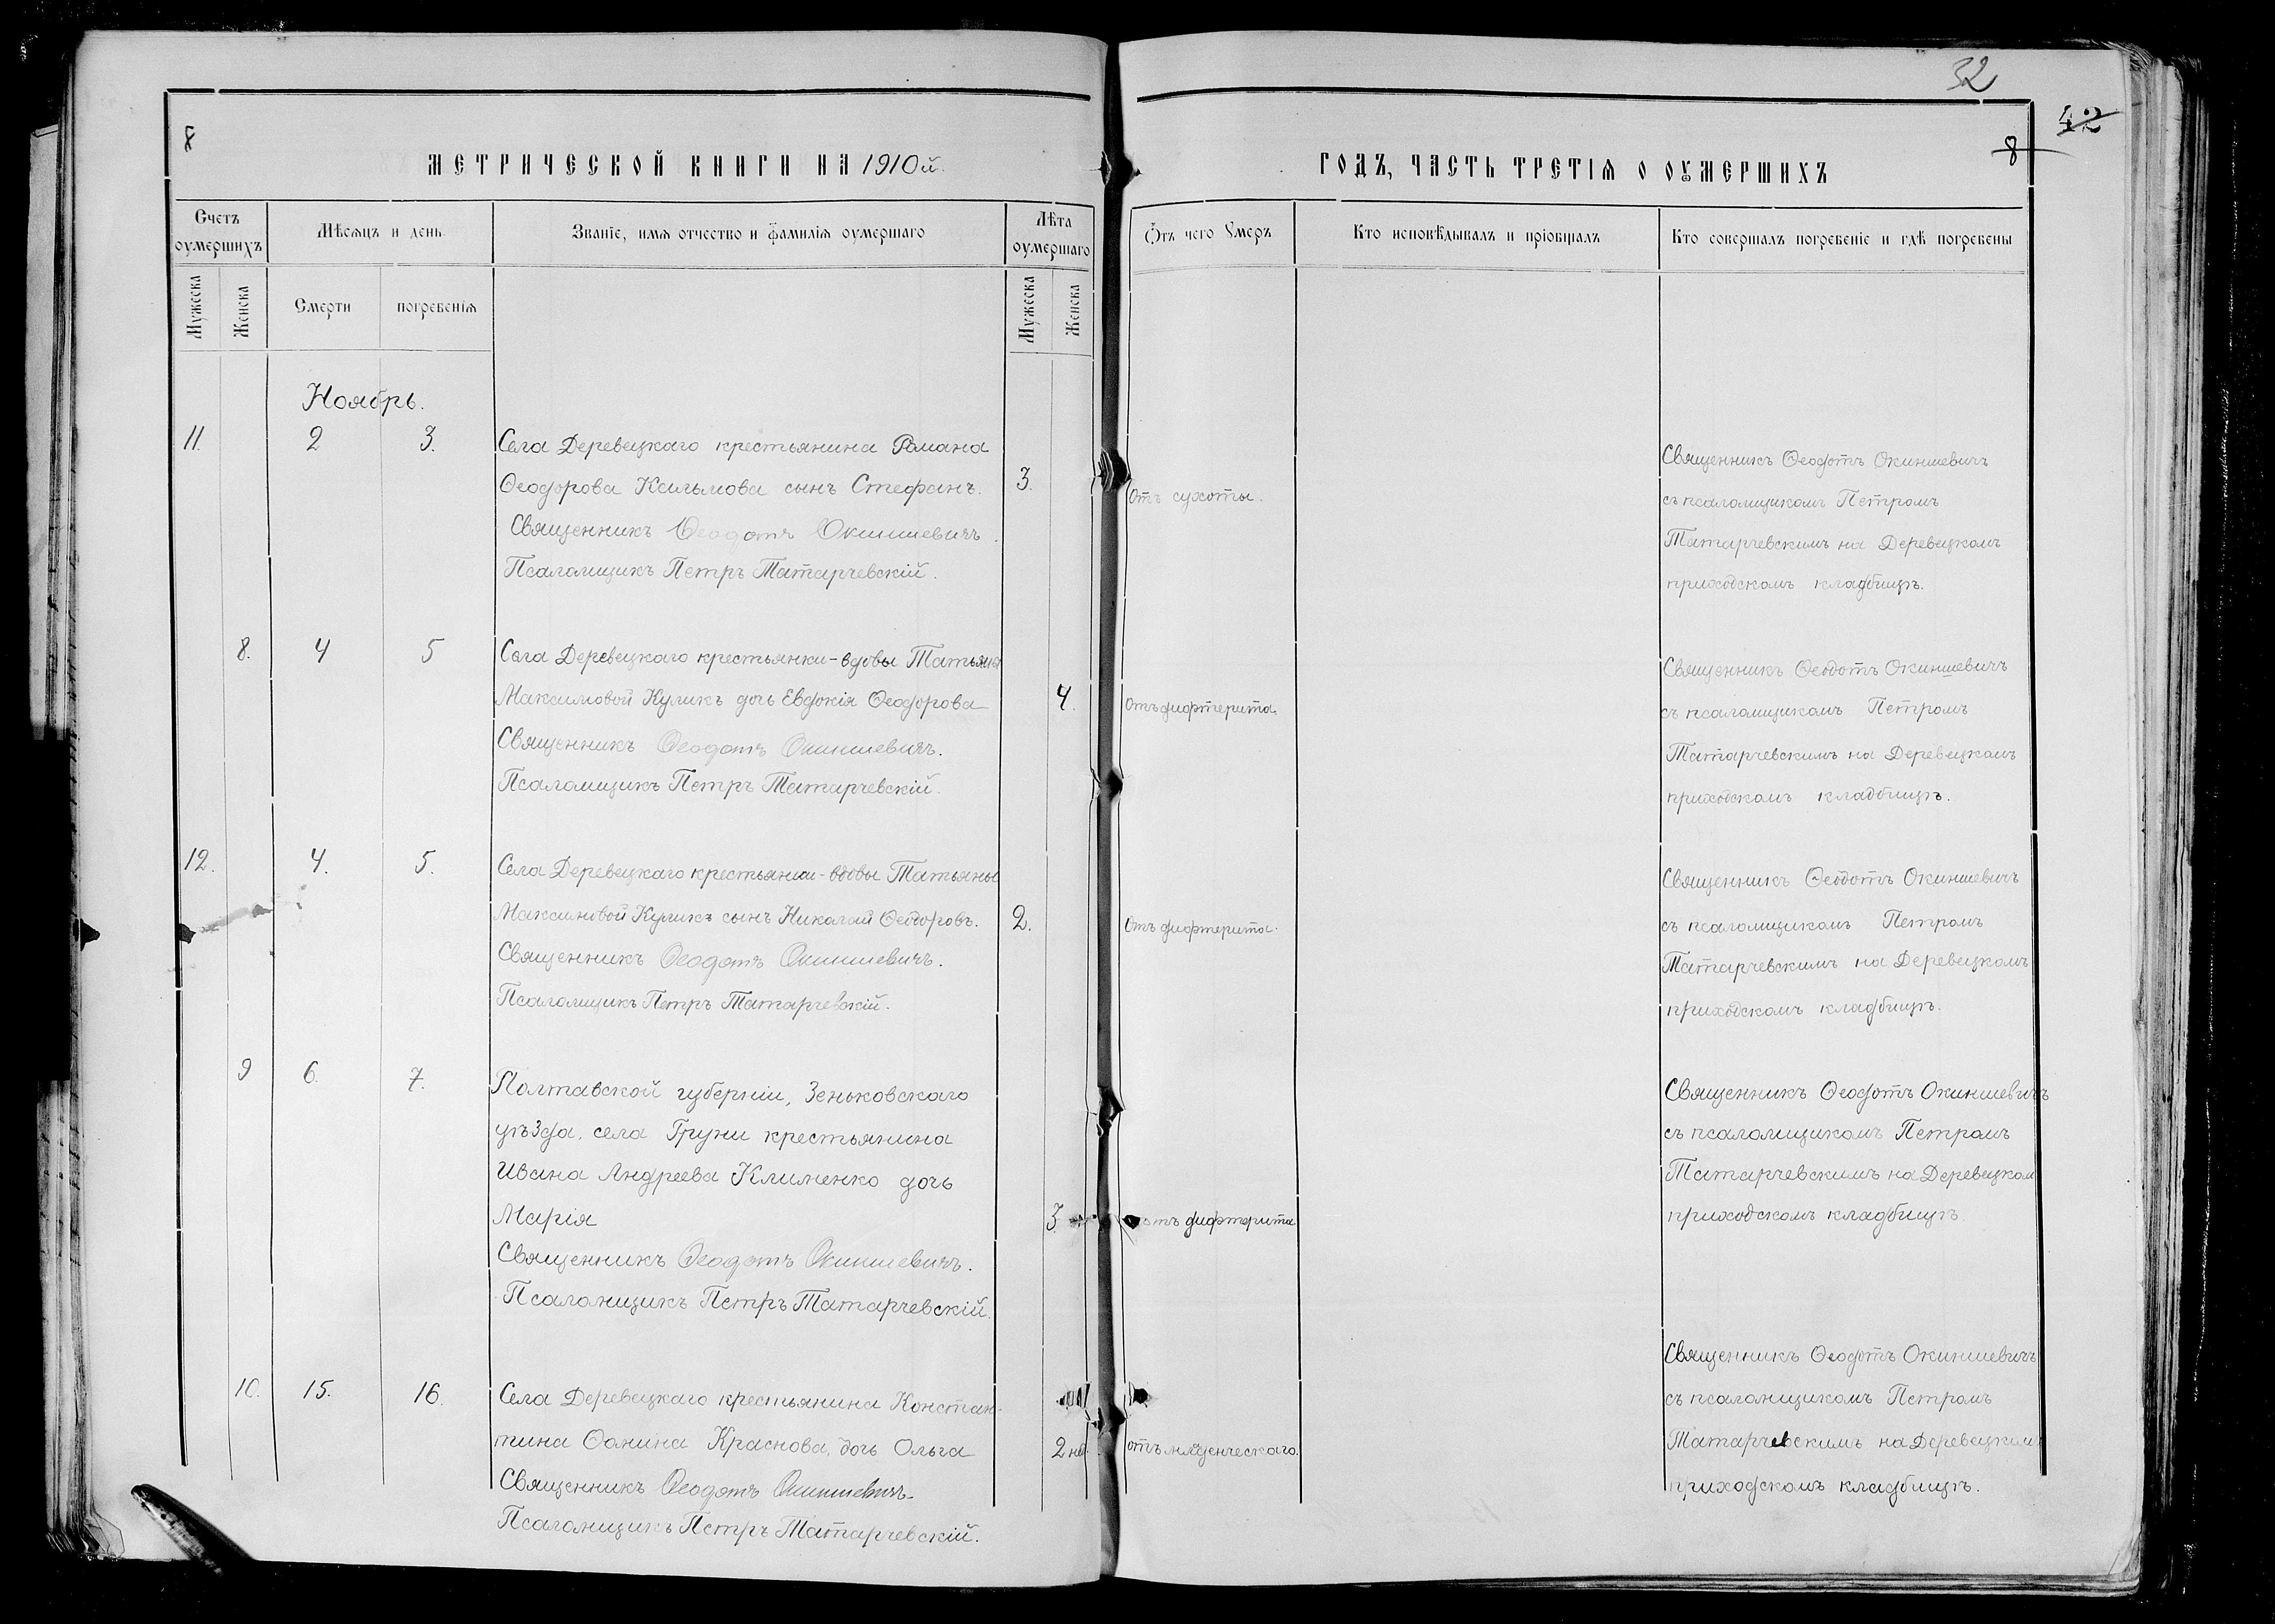 32
42
8
8
МЕТРИЧЕСКОЙ КНИГИ НА 1910й.
ГОДЪ, ЧАСТЬ ТРЕТІѦ О ОУМЕРШИХЪ
Счетъ оумершихъ
Мѣсѧцъ и день.
Званіе, имѧ отчество и фамиліѧ оумершаго
Лѣта оумершаго
Ѿтъ чего Умеръ
Кто исповѣдывалъ и пріобщалъ
Кто совершалъ погребеніе и гдѣ погребены
Мужеска
Женска
Смерти
погребеніѧ
Мужеска
Женска
Ноябрь.
11. 2 3.
Села Деревецкаго крестьянина Романа
Ѳеодорова Касьмова сынъ Стефанъ. 3.
Священникъ Ѳеодотъ Окиншевичъ.
Псаломщикъ Петръ Татарчевскій.
Отъ сухоты.
Священникъ Ѳеодотъ Окиншевичъ
съ псаломщикомъ Петромъ
Татарчевскимъ на Деревецкомъ
приходскомъ кладбищѣ.
8. 4 5
Села Деревецкаго крестьянки-вдовы Татьяны
Максимовой Куликъ дочь Евдокія Ѳеодорова 4.
Священникъ Ѳеодотъ Окиншевичъ.
Псаломщикъ Петръ Татарчевскій.
Отъ дифтерита.
Священникъ Ѳеодотъ Окиншевичъ
съ псаломщикомъ Петромъ
Татарчевскимъ на Деревецкомъ
приходскомъ кладбищѣ.
12. 4. 5.
Села Деревецкаго крестьянки-вдовы Татьяны
Максимовой Куликъ сынъ Николай Ѳеодоровъ. 2.
Священникъ Ѳеодотъ Окиншевичъ.
Псаломщикъ Петръ Татарчевскій.
Отъ дифтерита.
Священникъ Ѳеодотъ Окиншевичъ
съ псаломщикомъ Петромъ
Татарчевскимъ на Деревецкомъ
приходскомъ кладбищѣ.
9 6. 7.
Полтавской губерніи, Зеньковскаго
уѣзда, села Груни крестьянина
Ивана Андреева Клименко дочь
Марія 3.
Священникъ Ѳеодотъ Окиншевичъ.
Псаломщикъ Петръ Татарчевскій.
отъ дифтерита
Священникъ Ѳеодотъ Окиншевичъ
съ псаломщикомъ Петромъ
Татарчевскимъ на Деревецком
приходскомъ кладбищѣ
10. 15. 16.
Села Деревецкаго крестьянина Констан-
тина Ѳомина Краснова, дочь Ольга 2 нед.
Священникъ Ѳеодотъ Окиншевичъ.
Псаломщикъ Петръ Татарчевскій.
отъ младенческаго.
Священникъ Ѳеодотъ Окиншевичъ
съ псаломщикомъ Петромъ
Татарчевскимъ на Деревецком
приходскомъ кладбищѣ.